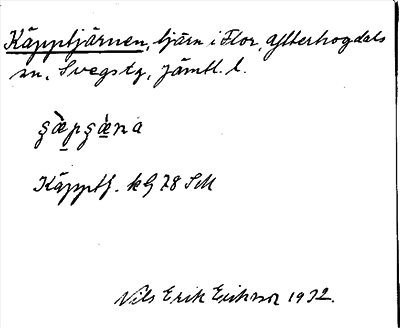 Käpptjärnen, tjärn i Flor, Ytterhogdals
sn, Svegs tg, Jämtl. l.
Käpptj. kG 78 SM
Nils Erik Erikson 1932.